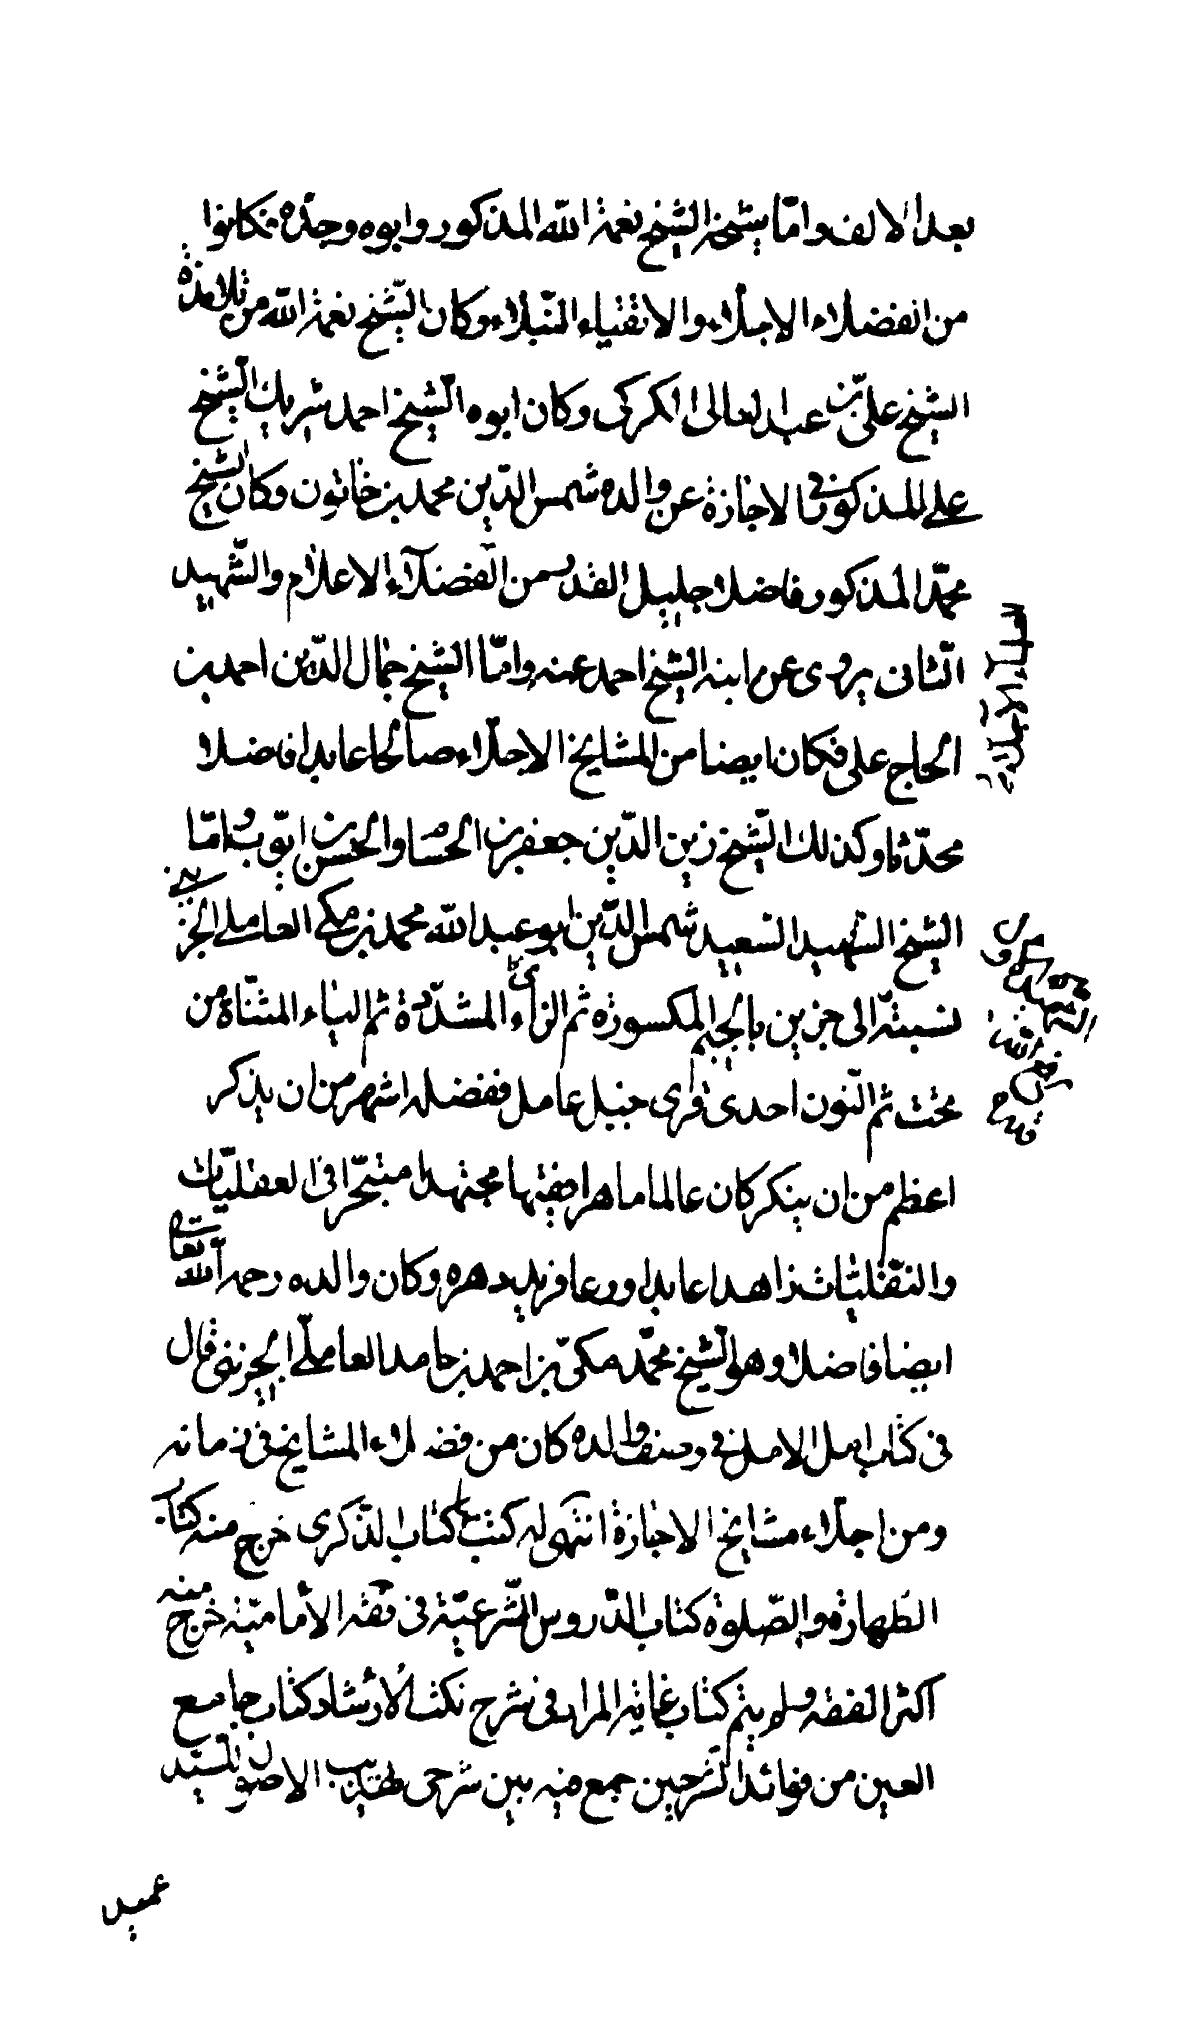 بعد الالف واما شيخه الشيخ نعمة الله المذكور وابوه وجده فكانوا
من الفضلاء الاجلاء والاتقياء النبلاء وكان الشيخ نعمة الله من تلامذة
الشيخ علي بن عبد العالى الكركى وكان ابوه الشيخ احمد شريك الشيخ
علي المذكور في الاجازة عن والده شمس الدين محمد بن خاتون وكان الشيخ
محمد المذكور فاضلا جليل القدر من الفضلاء الاعلام والشهيد
الثانى يروى عن ابنه الشيخ احمد عنه واما الشيخ جمال الدين احمد بن
الحاج على فكان ايضا من المشايخ الاجلاء صالحا عابدا فاضلا
محدثا وكذلك الشيخ زين الدين جعفر بن الحسام والحسن بن ايوب واما
الشيخ الشهيد السعيد شمس الدين ابو عبد الله محمد بن مكي العاملي الجزيني
نسبته الى جزين بالجيم المكسورة ثم الزاى المشددة ثم الياء المثناة من
تحت ثم النون احدى قرى جبل عامل ففضله اشهر من ان يذكر
اعظم من ان ينكر كان عالما ماهرا فقيها مجتهدا متبحرا فى العقليات
والنقليات زاهدا عابدا ورعا فريد دهره وكان والده رحمه الله تعالى
ايضا فاضلا وهو الشيخ محمد مكى بن احمد بن حامد العاملي الجزينى قال
فى كتاب امل الامل في وصف والده كان من فضلاء المشايخ فى زمانه
ومن اجلاء مشايخ الاجازة انتهى له كتب كتاب الذكرى خرج منه كتاب
الطهارة والصلوة كتاب الدروس الشرعية فى فقه الأمامية خرج منه
اكثر الفقه ولم يتم كتاب غاية المراد فى شرح نكت الارشاد كتاب جامع
العين من فوائد الشرحين جمع فيه بين شرحى تهذيب الاصول للسيد
عميد
العلماء الاجلاء
الشهيد
قدس